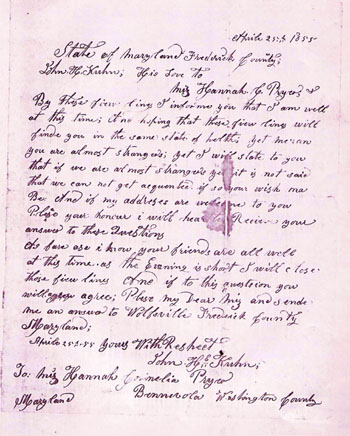 Aprile 25th 1855
State of Maryland Fredrick County;
John H. Kuhn; His Love to
Miss Hannah C. Pryer;
By these fiew lines I informe you that I am well
at this time; And hoping that these fiew lines will
finde you in the same state of helth; yet
you are almost strangers; yet I will state to you
that if we are almost strangers yet it is not said
that we can not get aequented if so your wish ma
Be And if my addreses are welcome to you
Please your honour i will hear to Recieve your
answer to these Questions
As fare as i know your friends are all well
at this time as the Evening is short I will close
these fiew lines And if to this question you
will agree; Please my Dear Miss and sende
me an answer to Wolfsville Fredrick County
Maryland;
Aprile 25-55 Yours With Respect
John H. Kuhn;
To: Miss Hannah Cornelia Pryer
Bennevola Washington County
Maryland